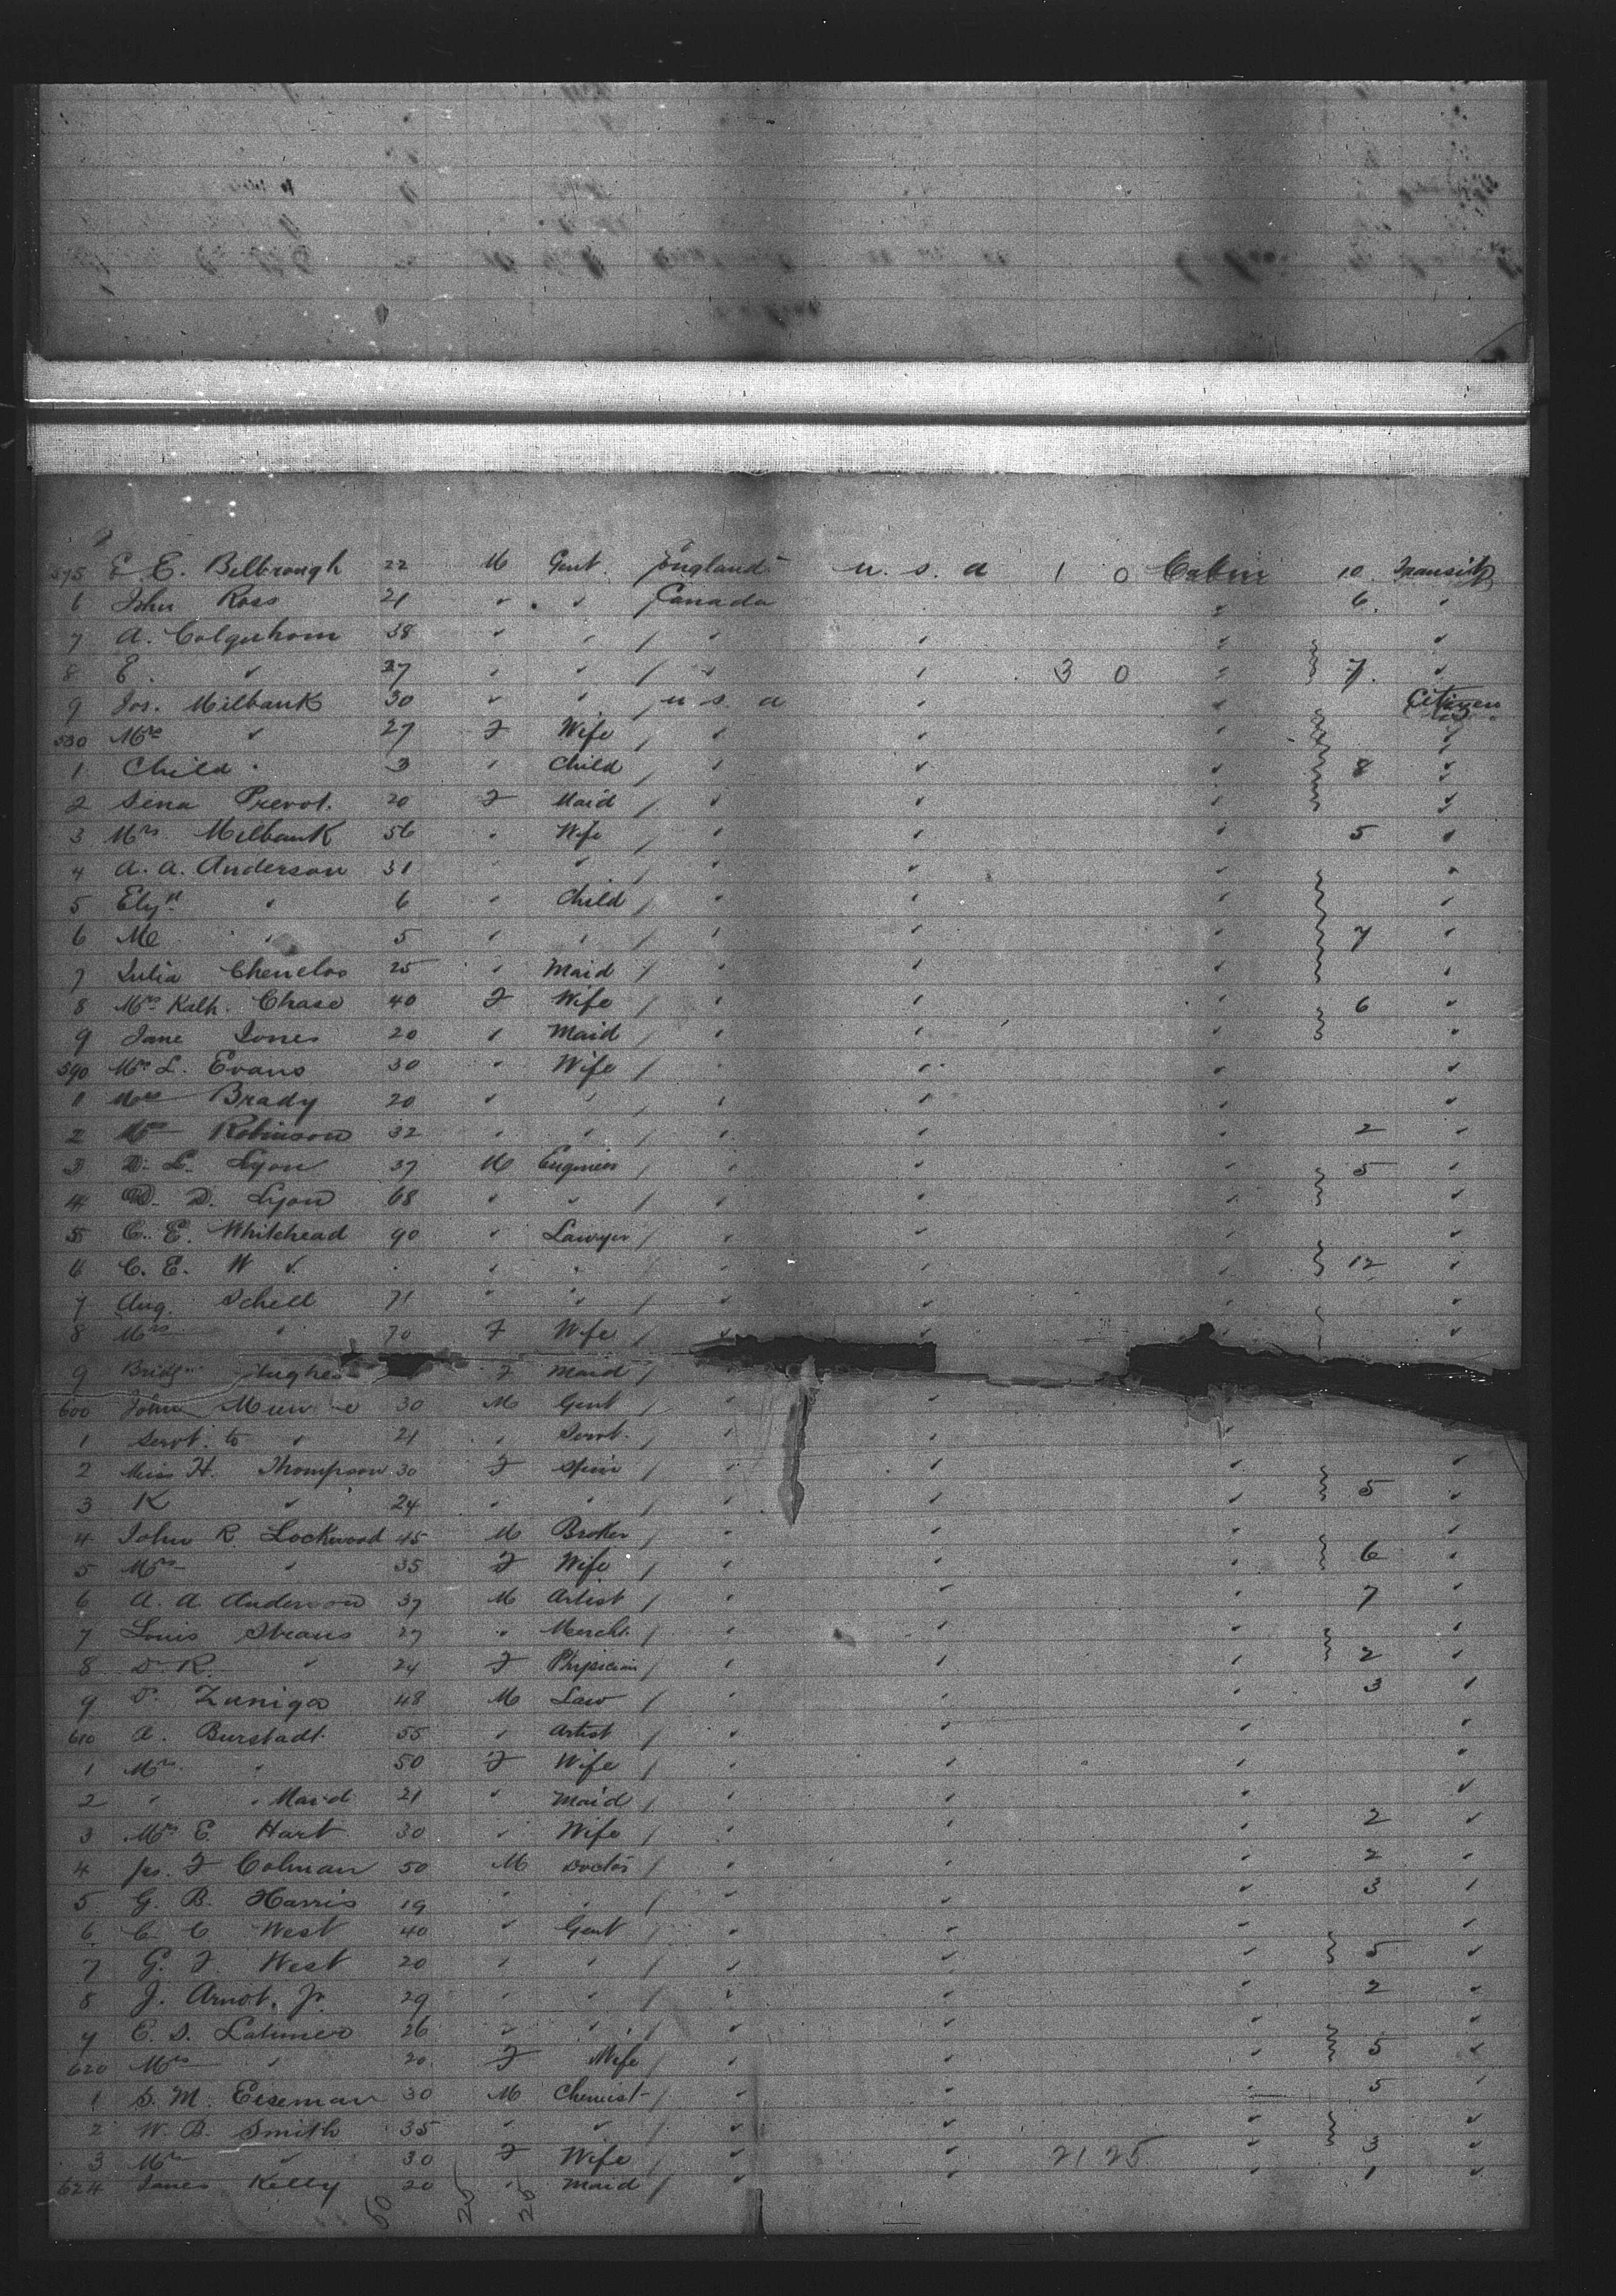 575 E. E. Bellrough 22 M Gent. England u. s. a 1 0 Cabin 10 Transit
6 John Ross 21 " " Canada " 6 "
7 A. Colquhoun 38 " " / " " " "
8 E. " 27 " " / " " 3 0 " 7 "
9 Jos. Milbank 30 " " u s a " " Citizen
580 Mrs " 27 F Wife / " " " "
1 Child " 3 " Child / " " " 8 "
2 Sena Prevot. 20 F Maid / " " " "
3 Mrs. Milbank 56 " Wife " " " 5 "
4 A. A. Anderson 31 " " / " " " "
5 Elyn " 6 " Child / " " " "
6 Me " 5 " " / " " " 7 "
7 Julia Chenelos 25 " Maid / " " " "
8 Mrs Kath. Chase 40 F Wife / " " " 6 "
9 Jane Jones 20 " Maid " " " "
590 Mrs L. Evans 30 " Wife / " " " "
1 Mrs Brady 20 " " / " " " "
2 Mrs Robinson 32 " " / " " " 2 "
3 D. L. Lyon 37 M Engineer / " " " 5 "
4 D. D. Lyon 68 " " / " " " "
5 C. E. Whitehead 90 " Lawyer / " " " "
6 C. E. W " " " " " " " 12 "
7 Aug. Schell 71 " " / " " " "
8 Mrs " 70 F Wife / " " " "
9 Bridgt Hughes F Maid /
600 John Munroe 30 M Gent / " "
1 Servt. to " 21 " Servt. / " " "
2 Miss H. Thompson 30 F Spin / " " " "
3 K " 24 " " / " " " 5 "
4 John R. Lockwood 45 M Broker / " " " "
5 Mrs " 35 F Wife / " " " 6 "
6 A. A. Anderson 37 M Artist / " " " 7 "
7 Louis Straus 27 " Mercht. / " " " "
8 Dr R. " 24 F Physician / " " " 2 "
9 D. Zuniga 48 M Law / " " " 3 "
610 A. Burstadt. 55 " Artist " " " "
1 Mrs. " 50 F Wife / " " " "
2 " " Maid 21 " Maid / " " " "
3 Mrs E. Hart 30 " Wife / " " " 2 "
4 Jas. F Colman 50 M Doctor / " " " 2 "
5 G. B. Harris 19 " " / " " " 3 "
6 C. C. West 40 " Gent " " " "
7 G. F. West 20 " " / " " " 5 "
8 J. Arnot. Jr. 29 " " / " " " 2 "
9 E. S. Latimer 26 " " / " " " "
620 Mrs " 20 F Wife / " " " 5 "
1 S. M. Eiseman 30 M Chemist / " " " 5 "
2 W. B. Smith 35 " " / " " " "
3 Mrs " 30 F Wife / " " 21 25 " 3 "
624 Janes Kelly 20 " Maid / " " " 1 "